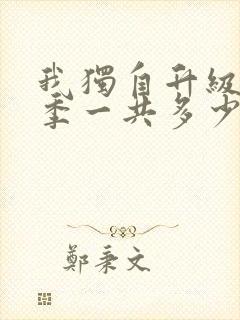 我獨自升級
季一共多少
鄭秉文